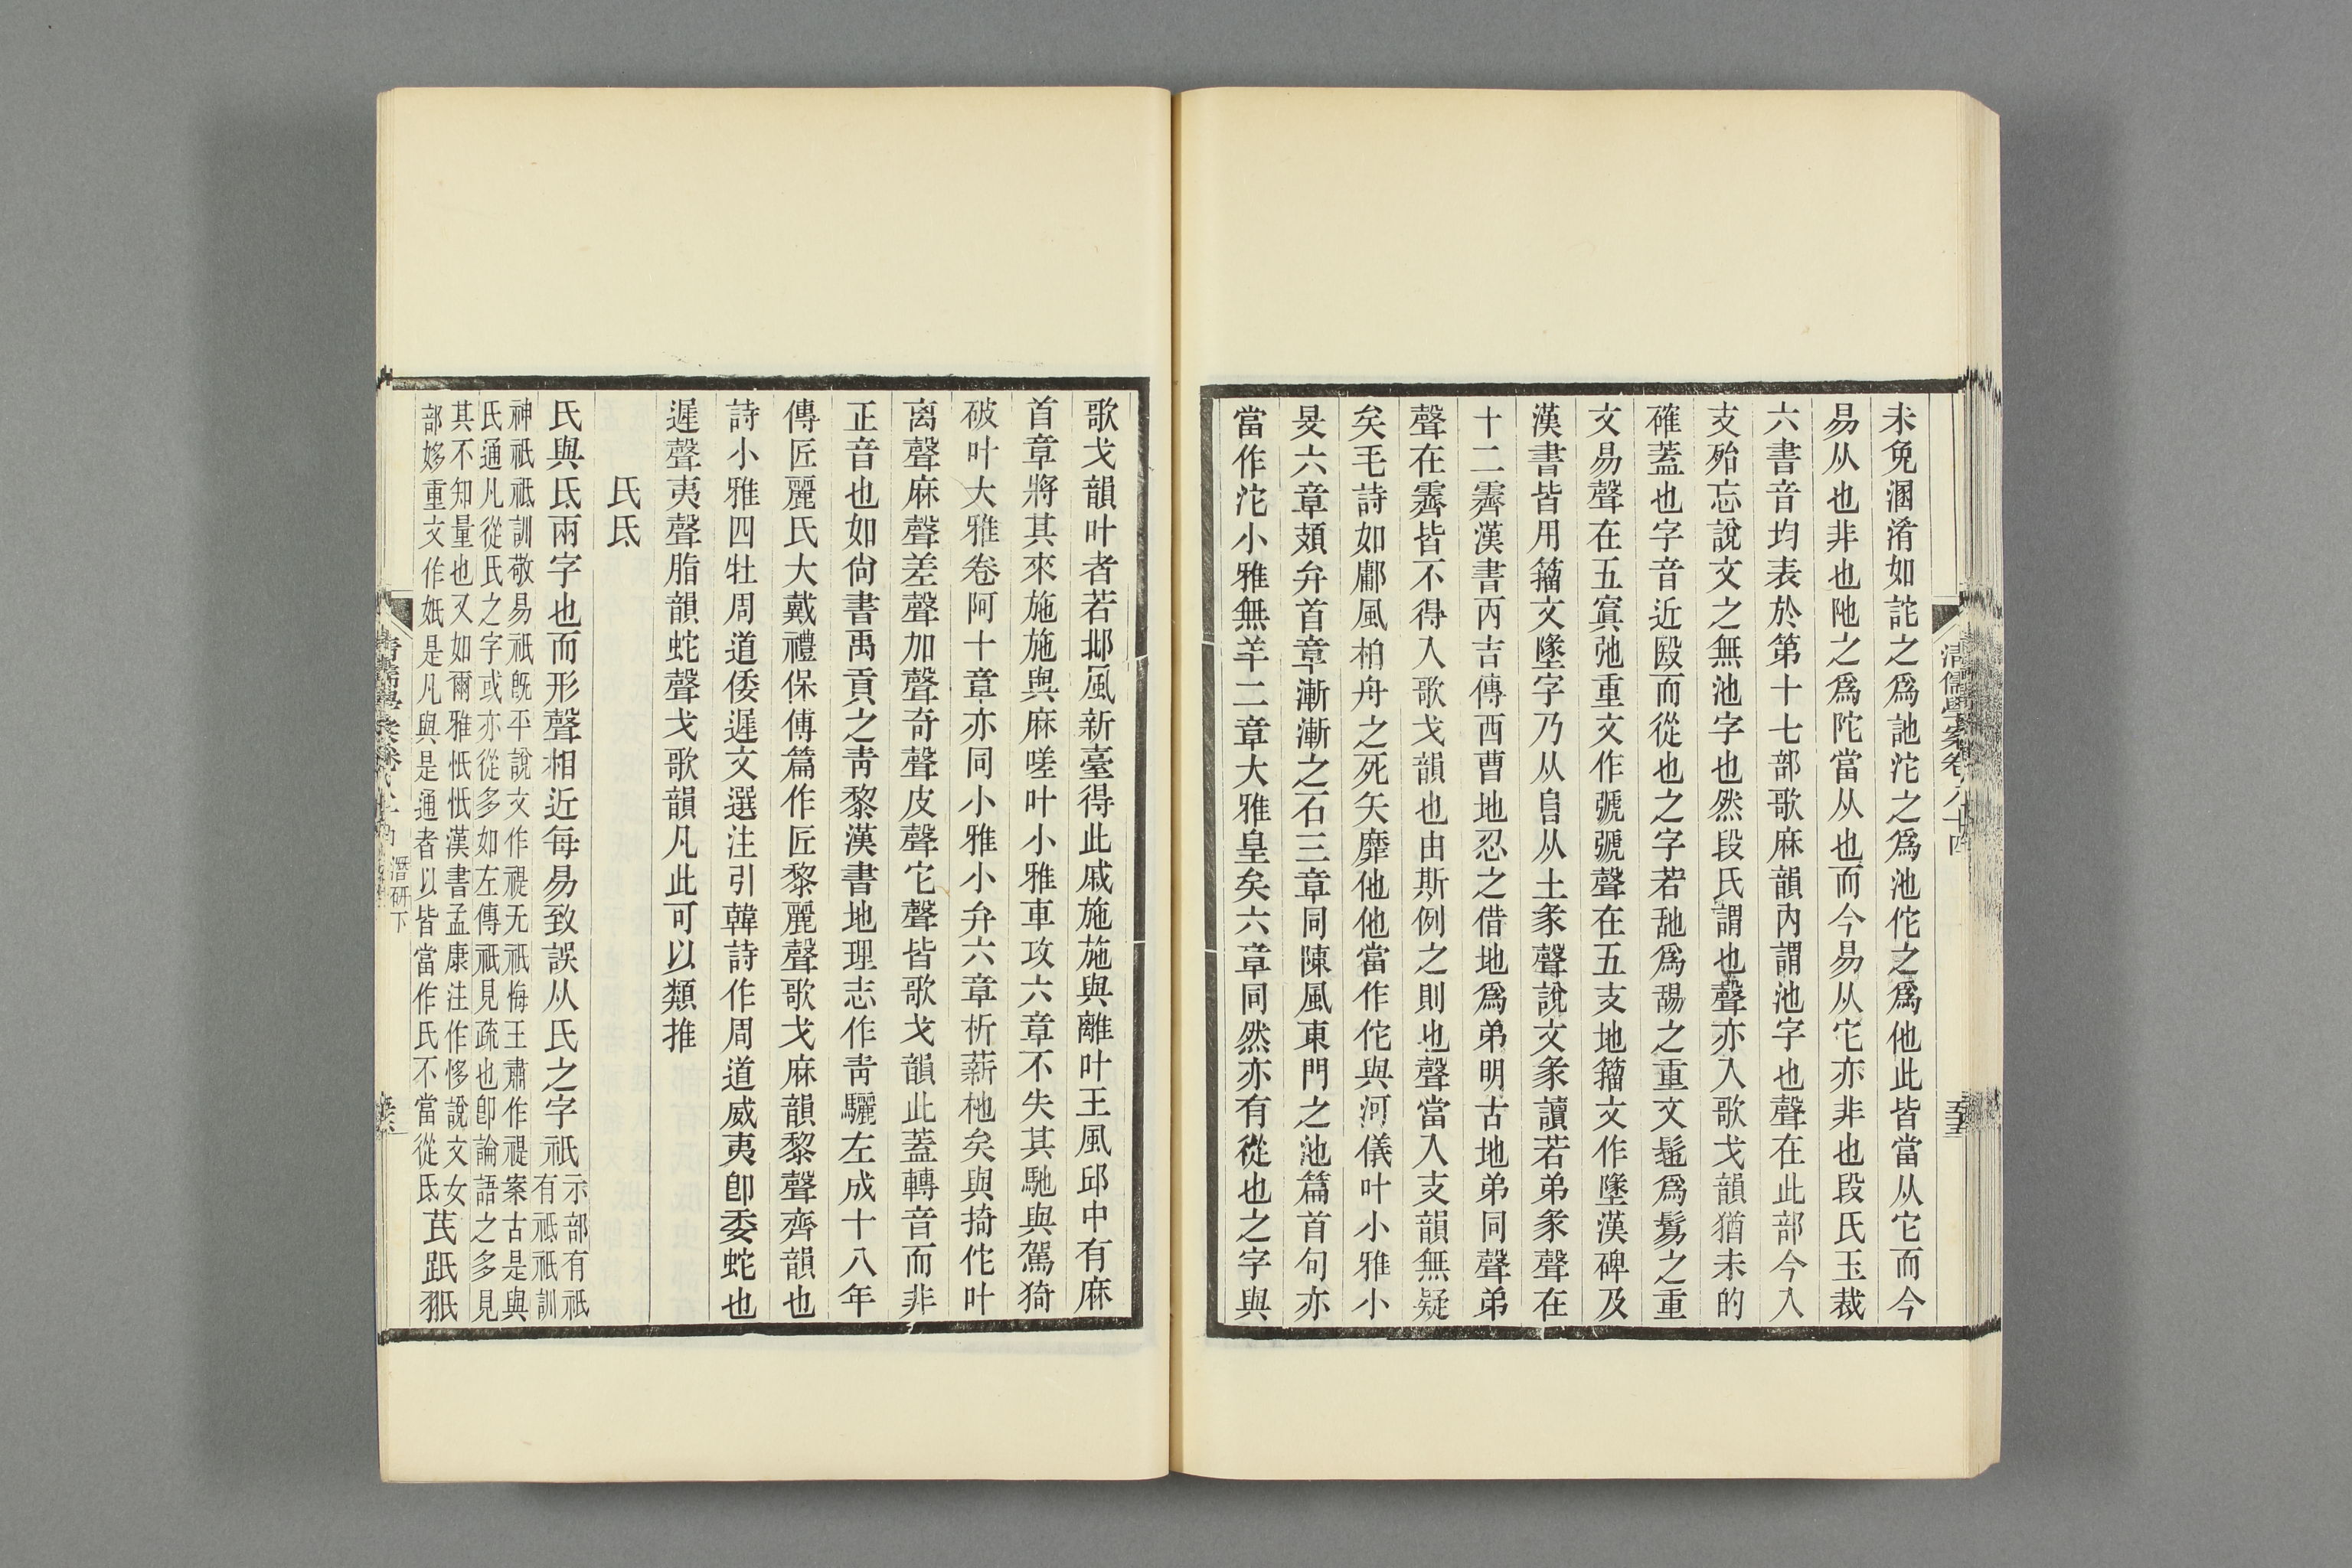 未免溷淆如詑之爲訑沱之爲池佗之爲他此皆當从它而今
易从也非也阤之爲陀當从也而今易从它亦非也段氏玉裁
六書音均表於第十七部歌麻韻內謂池字也聲在此部今入
支殆忘說文之無池字也然段氏謂也聲亦入歌戈韻猶未的
確蓋也字音近殹而從也之字若䑛爲舓之重文髢爲鬄之重
文易聲在五寘弛重文作號號聲在五支地籀文作墬漢碑及
漢書皆用籀文墬字乃从𨸏从土彖聲說文彖讀若弟彖聲在
十二霽漢書丙吉傳西曹地忍之借地爲弟明古地弟同聲弟
聲在霽皆不得入歌戈韻也由斯例之則也聲當入支韻無疑
矣毛詩如鄘風柏舟之死矢靡他他當作佗與河儀叶小雅小
旻六章頍弁首章漸漸之石三章同陳風東門之池篇首句亦
當作沱小雅無羊二章大雅皇矣六章同然亦有從也之字與
清儒學案卷八十四
歌戈韻叶者若邶風新臺得此戚施施與離叶王風邱中有麻
首章將其來施施與麻嗟叶小雅車攻六章不失其馳與駕猗
破叶大雅卷阿十章亦同小雅小弁六章析薪杝矣與掎佗叶
离聲麻聲差聲加聲奇聲皮聲它聲皆歌戈韻此蓋轉音而非
正音也如尙書禹貢之靑黎漢書地理志作靑驪左成十八年
傳匠麗氏大戴禮保傅篇作匠黎麗聲歌戈麻韻黎聲齊韻也
詩小雅四牡周道倭遲文選注引韓詩作周道威夷卽委蛇也
遲聲夷聲脂韻蛇聲戈歌韻凡此可以類推
氏氐
氏與氐兩字也而形聲相近每易致誤从氏之字祇示部有祇
有祗祇訓
神祇祗訓敬易祇旣平說文作禔无祇悔王肅作禔案古是與
氏通凡從氏之字或亦從多如左傳祇見疏也卽論語之多見
其不知量也又如爾雅忯忯漢書孟康注作恀說文女
部姼重文作妷是凡與是通者以皆當作氏不當從氐芪跂翐
潛研下